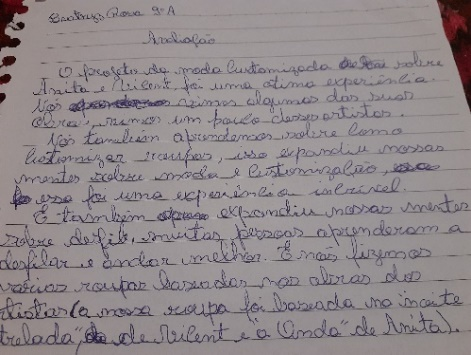 Beatryz Rosa 9º A
Avaliação
O projeto de moda customizada sobre
Anita e Vicent, foi uma ótima experiência.
Nós vimos algumas das suas
obras, vimos um pouco desses artistas.
Nós também aprendemos sobre como
customizar roupas, isso expandiu nossas
mentes sobre moda e customização,
essa foi uma experiência incrível.
E também expandiu nossas mentes
sobre desfile, muitas pessoas aprenderam a
desfilar e andar melhor. E nós fizemos
várias roupas baseadas nas obras dos
tistas (a nossa roupa foi baseada na "noite
trelada", de Vicent e "a Onda" de Anita).